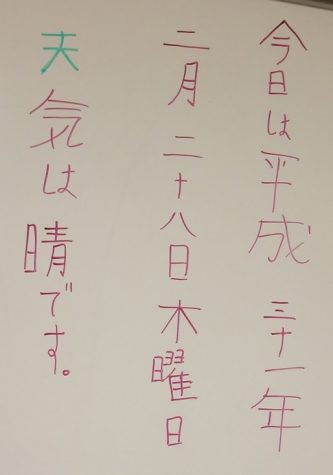 今日は平成 三十一年
二月 二十八日 木曜日
天気は晴です。